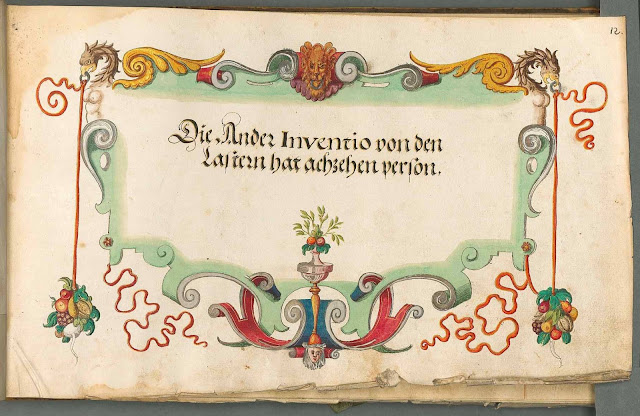 12.
Die Ander Inventio von den
Lastern hat achzehen person.